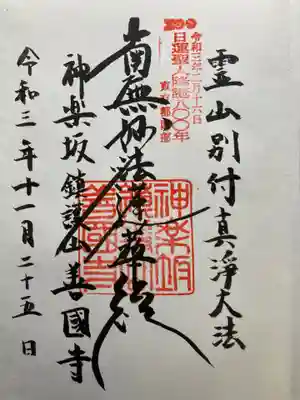 霊山別付真浄大法
令和三年二月十六日
日蓮聖人降誕八〇〇年
東京都
南無妙法蓮華経
神楽坂
善國寺
神楽坂 鎮護山善國寺
令和三年十一月二十五日